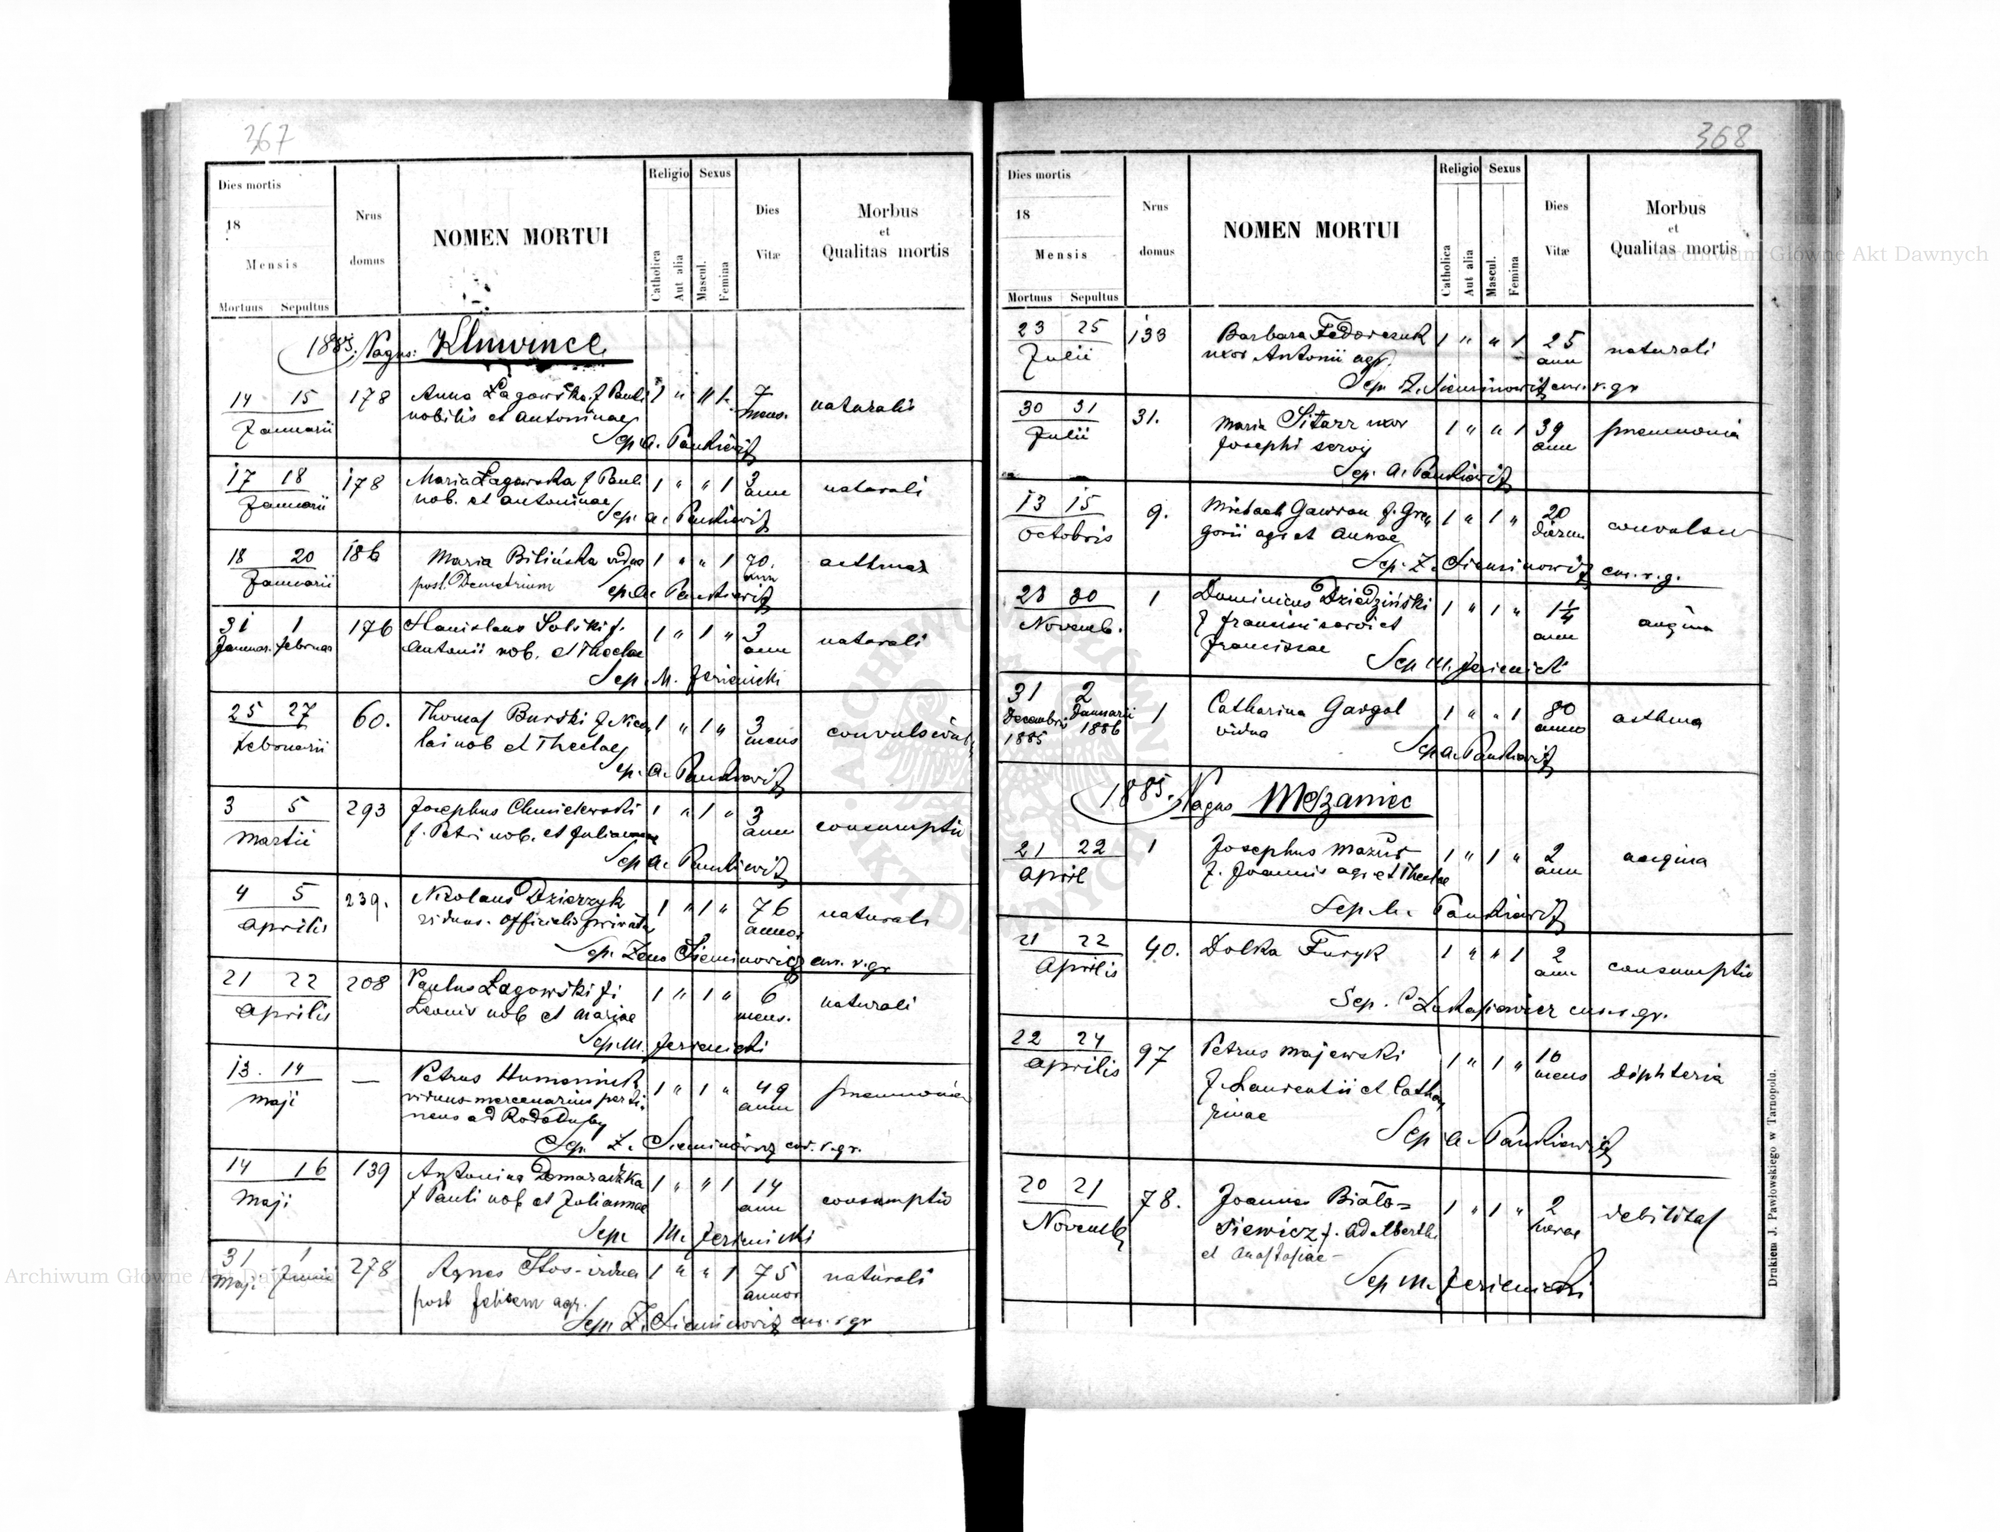 367
Dies mortis
18
Mensis
Mortuus Sepultus
Nrus domus
NOMEN MORTUI
Religio
Catholica
Aut alia
Sexus
Mascul.
Femina
Dies Vitæ
Morbus et Qualitas mortis
1885. Pagus: Kluwince
14 15 178 Anna Łagowska f. Pauli 1 " " 1 7
Januarii nobilis et Antoninae mens. naturalis
Sep. A. Pankiewicz
17 18 178 Maria Łagowska f. Pauli 1 " " 1 3
Januarii nob. et Antoninae ann naturali
Sep. A. Pankiewicz
18 20 186 Maria Bilińska vidua 1 " " 1 70. asthma
Januarii post Demetrium ann
Sep. A. Pankiewicz
31 1 176 Stanislaus Solski f. 1 " 1 " 3
Januar. Februar Antonii nob. et Theclae ann naturali
Sep. M. Jezienicki
25 27 60. Thomas Burski f. Nico 1 " 1 " 3
Februarii lai nob et Theclae mens
Sep. A. Pankiewicz
3 5 293 Josephus Chmielewski 1 " 1 " 3
Martii f. Petri nob. et Julianae ann consumptio
Sep. A. Pankiewicz
4 5 239. Nicolaus Dzierzyk 1 " 1 " 76
Aprilis viduus. officialis privatus annor naturali
Sep. Zeno Sieminowicz cur. r. gr
21 22 208 Paulus Łagowski f. 1 " 1 " 6
Aprilis Leonis nob et Mariae mens. naturali
Sep. M. Jezienicki
13. 14 — Petrus Humeniuk 1 " 1 " 49
Maji viduus mercenarius perti- ann pneumonia
nens ad
Sep. Z. Sieminowicz cur. r. gr.
14 16 139 Antonina Domaradzka 1 " " 1 14
Maji f Pauli nob et Julianae ann consumptio
Sep. M. Jezienicki
31 1 278 Agnes Stos vidua 1 " " 1 75
Maji Junii post Felicem agr. annor naturali
Sep. Z. Sieminowicz cur. r gr
368
Dies mortis
18
Mensis
Mortuus Sepultus
Nrus domus
NOMEN MORTUI
Religio
Catholica
Aut alia
Sexus
Mascul.
Femina
Dies Vitæ
Morbus et Qualitas mortis
23 25 133 Barbara Fedorczuk 1 " " 1 25
Julii uxor Antonii agr. ann naturali
Sep. Z. Sieminowicz cur. r. gr
30 31 31. Maria Sitarz uxor 1 " " 1 39 pneumonia
Julii Josephi servi ann
Sep. A. Pankiewicz
13 15 9. Michael Gawron f. Gre 1 " 1 " 20
Octobris gorii agr et Annae dierum
Sep. Z. Sieminowicz cur. r. g.
28 30 1 Dominicus Dziedziński 1 " 1 " 1 1/4
Novemb. f Francisci servi et ann angina
Franciscae
Sep M. Jezienicki
31 2 1 Catharina Gargol 1 " " 1 80 asthma
Decembris Januarii vidua anno
1885 1886
Sep A. Pankiewicz
1885. Pagus Mszaniec
21 22 1 Josephus Mazur 1 " 1 " 2 angina
April f. Joannis agr et Theclae ann
Sep. A. Pankiewicz
21 22 40. Dolka Furyk 1 " " 1 2
Aprilis ann consumptio
Sep. Łukasiewicz cur. r. gr.
22 24 97 Petrus Majewski 1 " 1 " 10
Aprilis f. Laurentii et Catha mens Diphteria
rinae
Sep. A. Pankiewicz
20 21 78. Joannes Biało= 1 " 1 " 2 debilitas
Novemb siewicz f. Adalberti horae
et Anastasiae
Sep M. Jezienicki
Drukiem J. Pawłowskiego w Tarnopolu.
Archiwum Główne Akt Dawnych
Archiwum Główne Akt Dawnych
ARCHIWUM GŁÓWNE AKT DAWNYCH